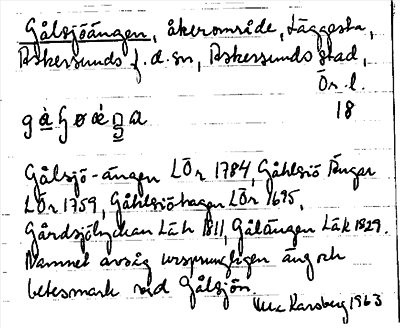 Gålsjöängen, åkerområde, Läggesta,
Askersunds f.d. sn, Askersunds stad,
Ör. l.
18
Gålsjö-ängen LÖr 1784, Gåhlsiö Ängar
LÖr 1759, Gåhlsiöhagen LÖr 1695,
Gårdsjölyckan Läk 1811, Gålängen Läk 1829.
Namnet avsåg ursprungligen äng och
betesmark vid Gålsjön.
Karsberg 1963